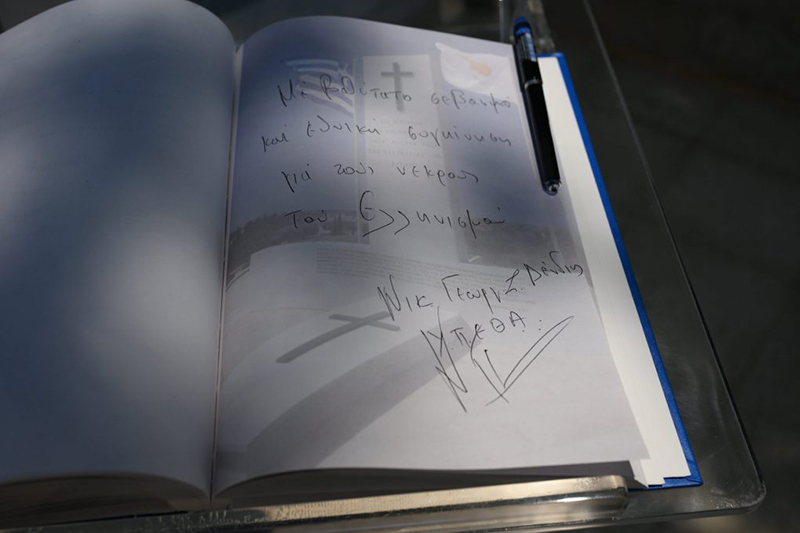 Με βαθύτατο σεβασμό
και εθνική συγκίνηση
για τους νεκρούς
του Ελληνισμού
Νικ. Γεώργ. Σ. Δένδιας
ΥΠΕΘΑ